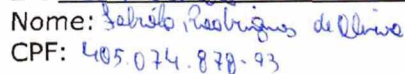 Nome: Rodrigues de Oliveira
CPF: 405.074.878-93